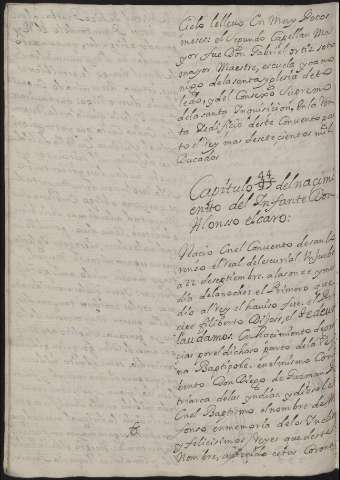 Cielo lelleuo En Muy Pocos
meses: el segundo Capellan Ma
yor fue Don Gabriel ortiz soto
mayor Maestre, escuela y cano
nigo de la santa yglesia de to
ledo, y del Consexo Supremo
de la santa Inquisicion, En la Pon
ta Dedificio deste Convento gas
to el Rey mas de sete cientos mil
Ducados
Capitulo 44 del nacimi
ento del Infante Don
Alonsso el caro:
Nacio En el Convento de san lo
renso el Real del escurial Un Juebes
a 22 de septiembre, a las once y me
dia de la noche, el Primero que
dio al Rey el haviso fue, el Prin
cipe filiberto Dijose, el te deun
laudamos. En Hacimiento de gra
cias por el dichoso parto de la Rei
na Baptisole, en el mismo Con
bento Don Diego de Guzman Pa
triarca de las yndias, y diosele
En el Baptismo, el nombre de Al
fonso en memoria de los
y felicissimos Reyes que deste
Nombre, estas Coronas